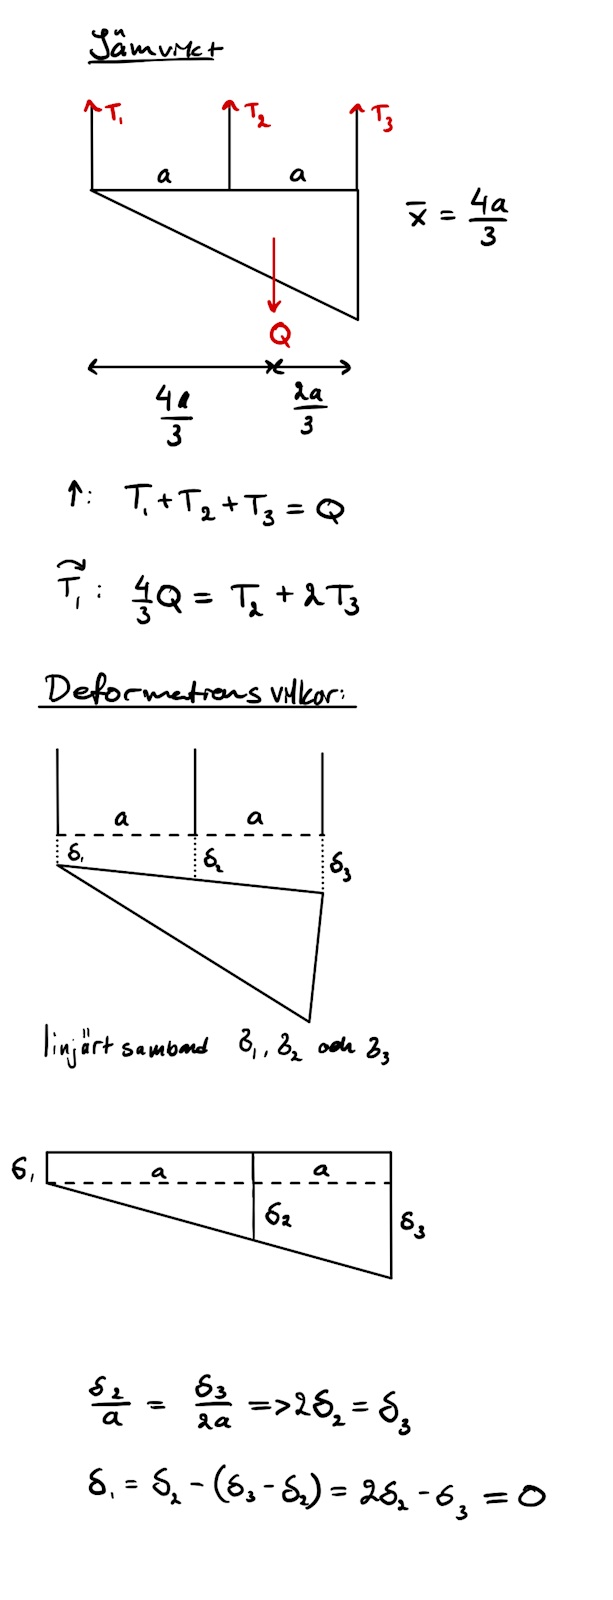 Jämvikt
T₁ T₂ T₃
a a
x̄ = 4a/3
Q
4a/3 2a/3
↑: T₁ + T₂ + T₃ = Q
T₁: 4/3 Q = T₂ + 2T₃
Deformations villkor:
a a
δ₁ δ₂ δ₃
linjärt samband δ₁, δ₂ och δ₃
δ₁ a a
δ₂ δ₃
δ₂/a = δ₃/2a => 2δ₂ = δ₃
δ₁ = δ₂ - (δ₃ - δ₂) = 2δ₂ - δ₃ = 0